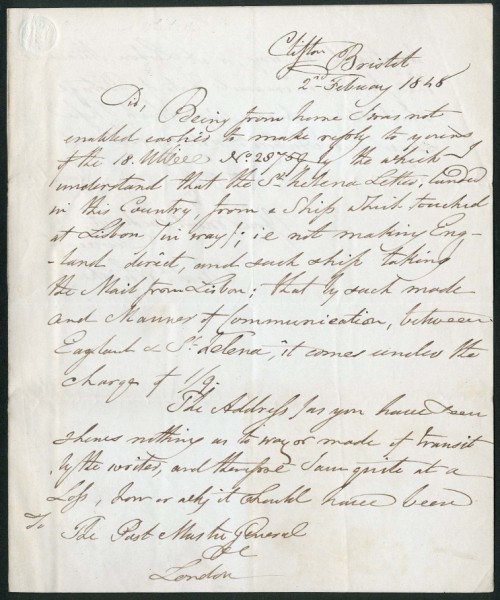 Clifton Bristol
2nd Febuary 1848
Sir, Being from home I was not
enabled earlier to make reply to yours
of the 18. Ultee No. 28754 by the which I
understand that the St. Helena Letter, landed
in this Country from a Ship that touched
at Lisbon (in way); i.e. not making Eng-
-land direct, and such ship taking
the Mail from Lisbon; that by such mode
and Manner of Communication, between
England & St. Helena, it comes under the
charge of 1/9.
The Address (as you have seen
shews nothing as to way or mode of transit
by the writer, and therefore I am quite at a
Loss, how or why it should have been
To
The Post Master General
&c
London